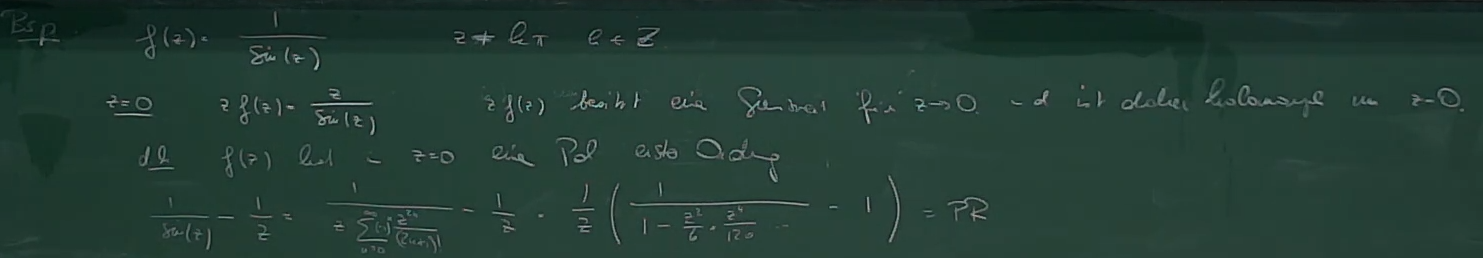 Bsp. f(z) = 1/Sin(z) z ≠ kπ k ∈ Z
z=0 z f(z) = z/Sin(z) z f(z) besitzt eine Grenzwert für z→0 und ist daher holomorph um z=0.
d.h. f(z) hat in z=0 eine Pol erste Ordnung
1/Sin(z) - 1/z = 1/(z ∑_{n=0}^{∞} (-1)^n z^{2n}/(2n+1)!) - 1/z = 1/z ( 1/(1 - z²/6 + z⁴/120 ...) - 1 ) = PR